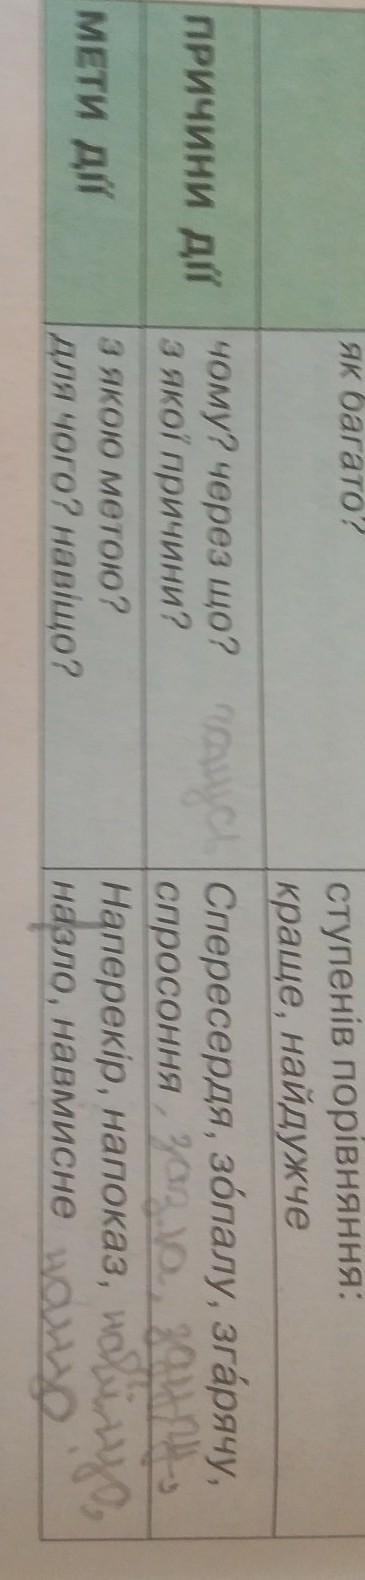 як багато?
ступенів порівняння:
краще, найдужче
ПРИЧИНИ ДІЇ
чому? через що?
з якої причини?
Спересердя, зо́палу, зга́рячу,
спросоння
МЕТИ ДІЇ
з якою метою?
для чого? навіщо?
Наперекір, напоказ,
назло, навмисне